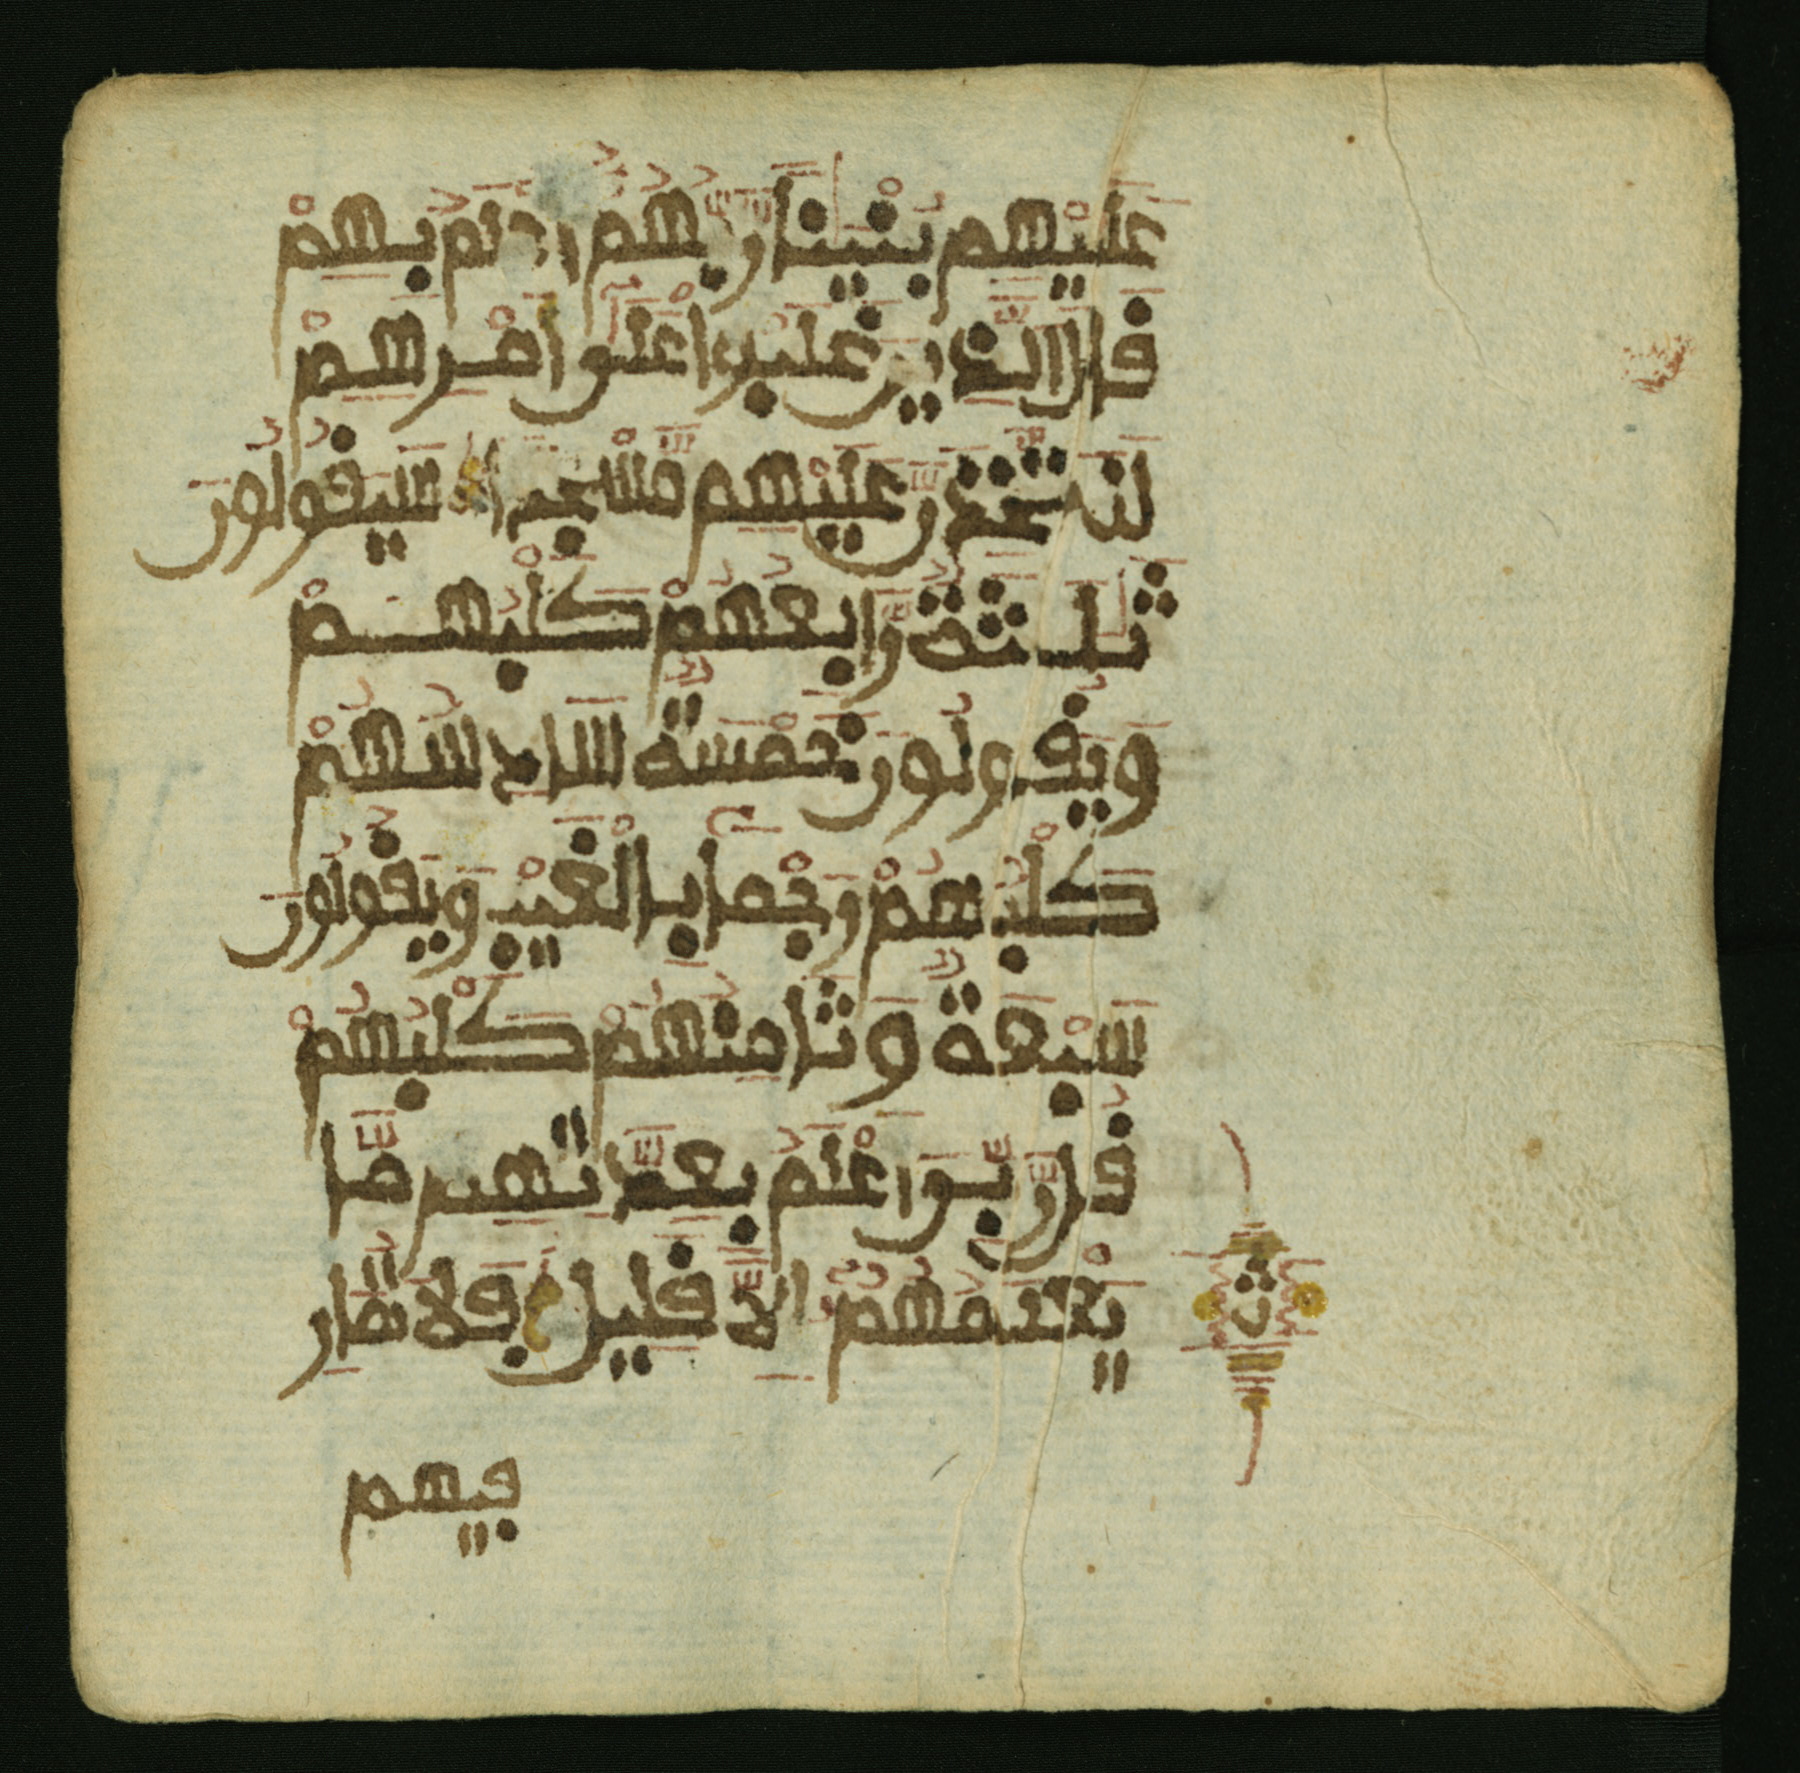 عَلَيْهِم بُنْيَٰنًا رَّبُّهُمُۥٓ أَعْلَمُ بِهِمْ
قَالَ الَّذِينَ غَلَبُوا عَلَىٰٓ أَمْرِهِمْ
لَنَتَّخِذَنَّ عَلَيْهِم مَّسْجِدًا سَيَقُولُونَ
ثَلَٰثَةٌ رَّابِعُهُمْ كَلْبُهُمْ
وَيَقُولُونَ خَمْسَةٌ سَادِسُهُمْ
كَلْبُهُمْ رَجْمًا بِالْغَيْبِ وَيَقُولُونَ
سَبْعَةٌ وَثَامِنُهُمْ كَلْبُهُمْ
قُل رَّبِّىَ أَعْلَمُ بِعِدَّتِهِم مَّا
يَعْلَمُهُمُۥٓ إِلَّا قَلِيلٌ فَلَا تُمَارِ
ث
فيهم